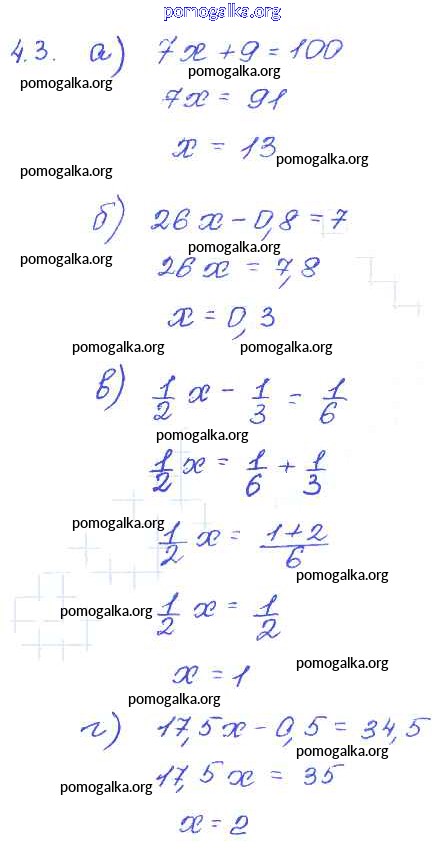 pomogalka.org
4.3. а) 7x + 9 = 100
pomogalka.org pomogalka.org
7x = 91
x = 13 pomogalka.org
pomogalka.org
б) 26x - 0,8 = 7
pomogalka.org
pomogalka.org 26x = 7,8
x = 0,3
pomogalka.org pomogalka.org
в) 1/2 x - 1/3 = 1/6
pomogalka.org
1/2 x = 1/6 + 1/3
pomogalka.org
1/2 x = (1+2)/6
pomogalka.org
pomogalka.org 1/2 x = 1/2
x = 1 pomogalka.org
pomogalka.org
г) 17,5x - 0,5 = 34,5
pomogalka.org
pomogalka.org 17,5x = 35
x = 2